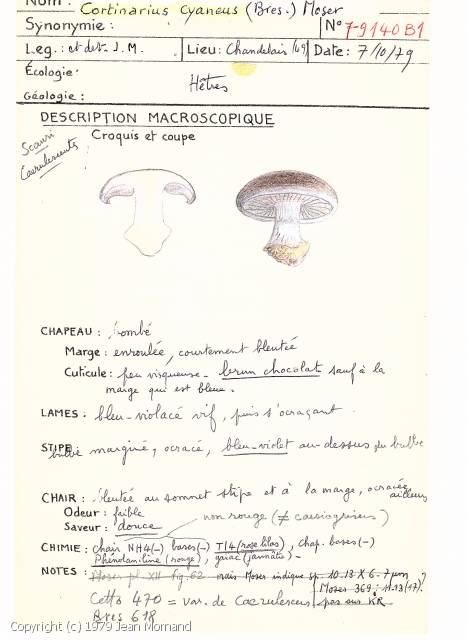 Nom : Cortinarius cyaneus (Bres.) Moser
Synonymie : N° 7-9140B1
Leg. : et det. J. M. Lieu : Chandelais (49) Date : 7/10/79
Écologie : Hêtres
Géologie :
DESCRIPTION MACROSCOPIQUE
Scauri
Caerulescentes
Croquis et coupe
CHAPEAU : bombé
Marge : enroulée, courtement bleutée
Cuticule : peu visqueuse - brun chocolat sauf à la
marge qui est bleue.
LAMES : bleu-violacé vif, puis s'ocraçant.
STIPE : bulbe marginé, ocracé, bleu-violet au-dessus du bulbe
CHAIR : bleutée au sommet stipe et à la marge, ocracée ailleurs
Odeur : faible
Saveur : douce
non rouge (≠ caesiogriseus)
CHIMIE : chair NH4(-) bases(-) Tl4 (rose lilas), chap. bases(-)
Phénolaniline (rouge), gaïac (jaunâtre) -
NOTES : Moser pl. XII fig. 62 mais Moser indique sp. 10.13 X 6-7 µm
Moser 369 : 11.13 (17).
Cetto 470 = var. de Caerulescens pas sur KR
Bres 618
Copyright (c) 1979 Jean Mornand